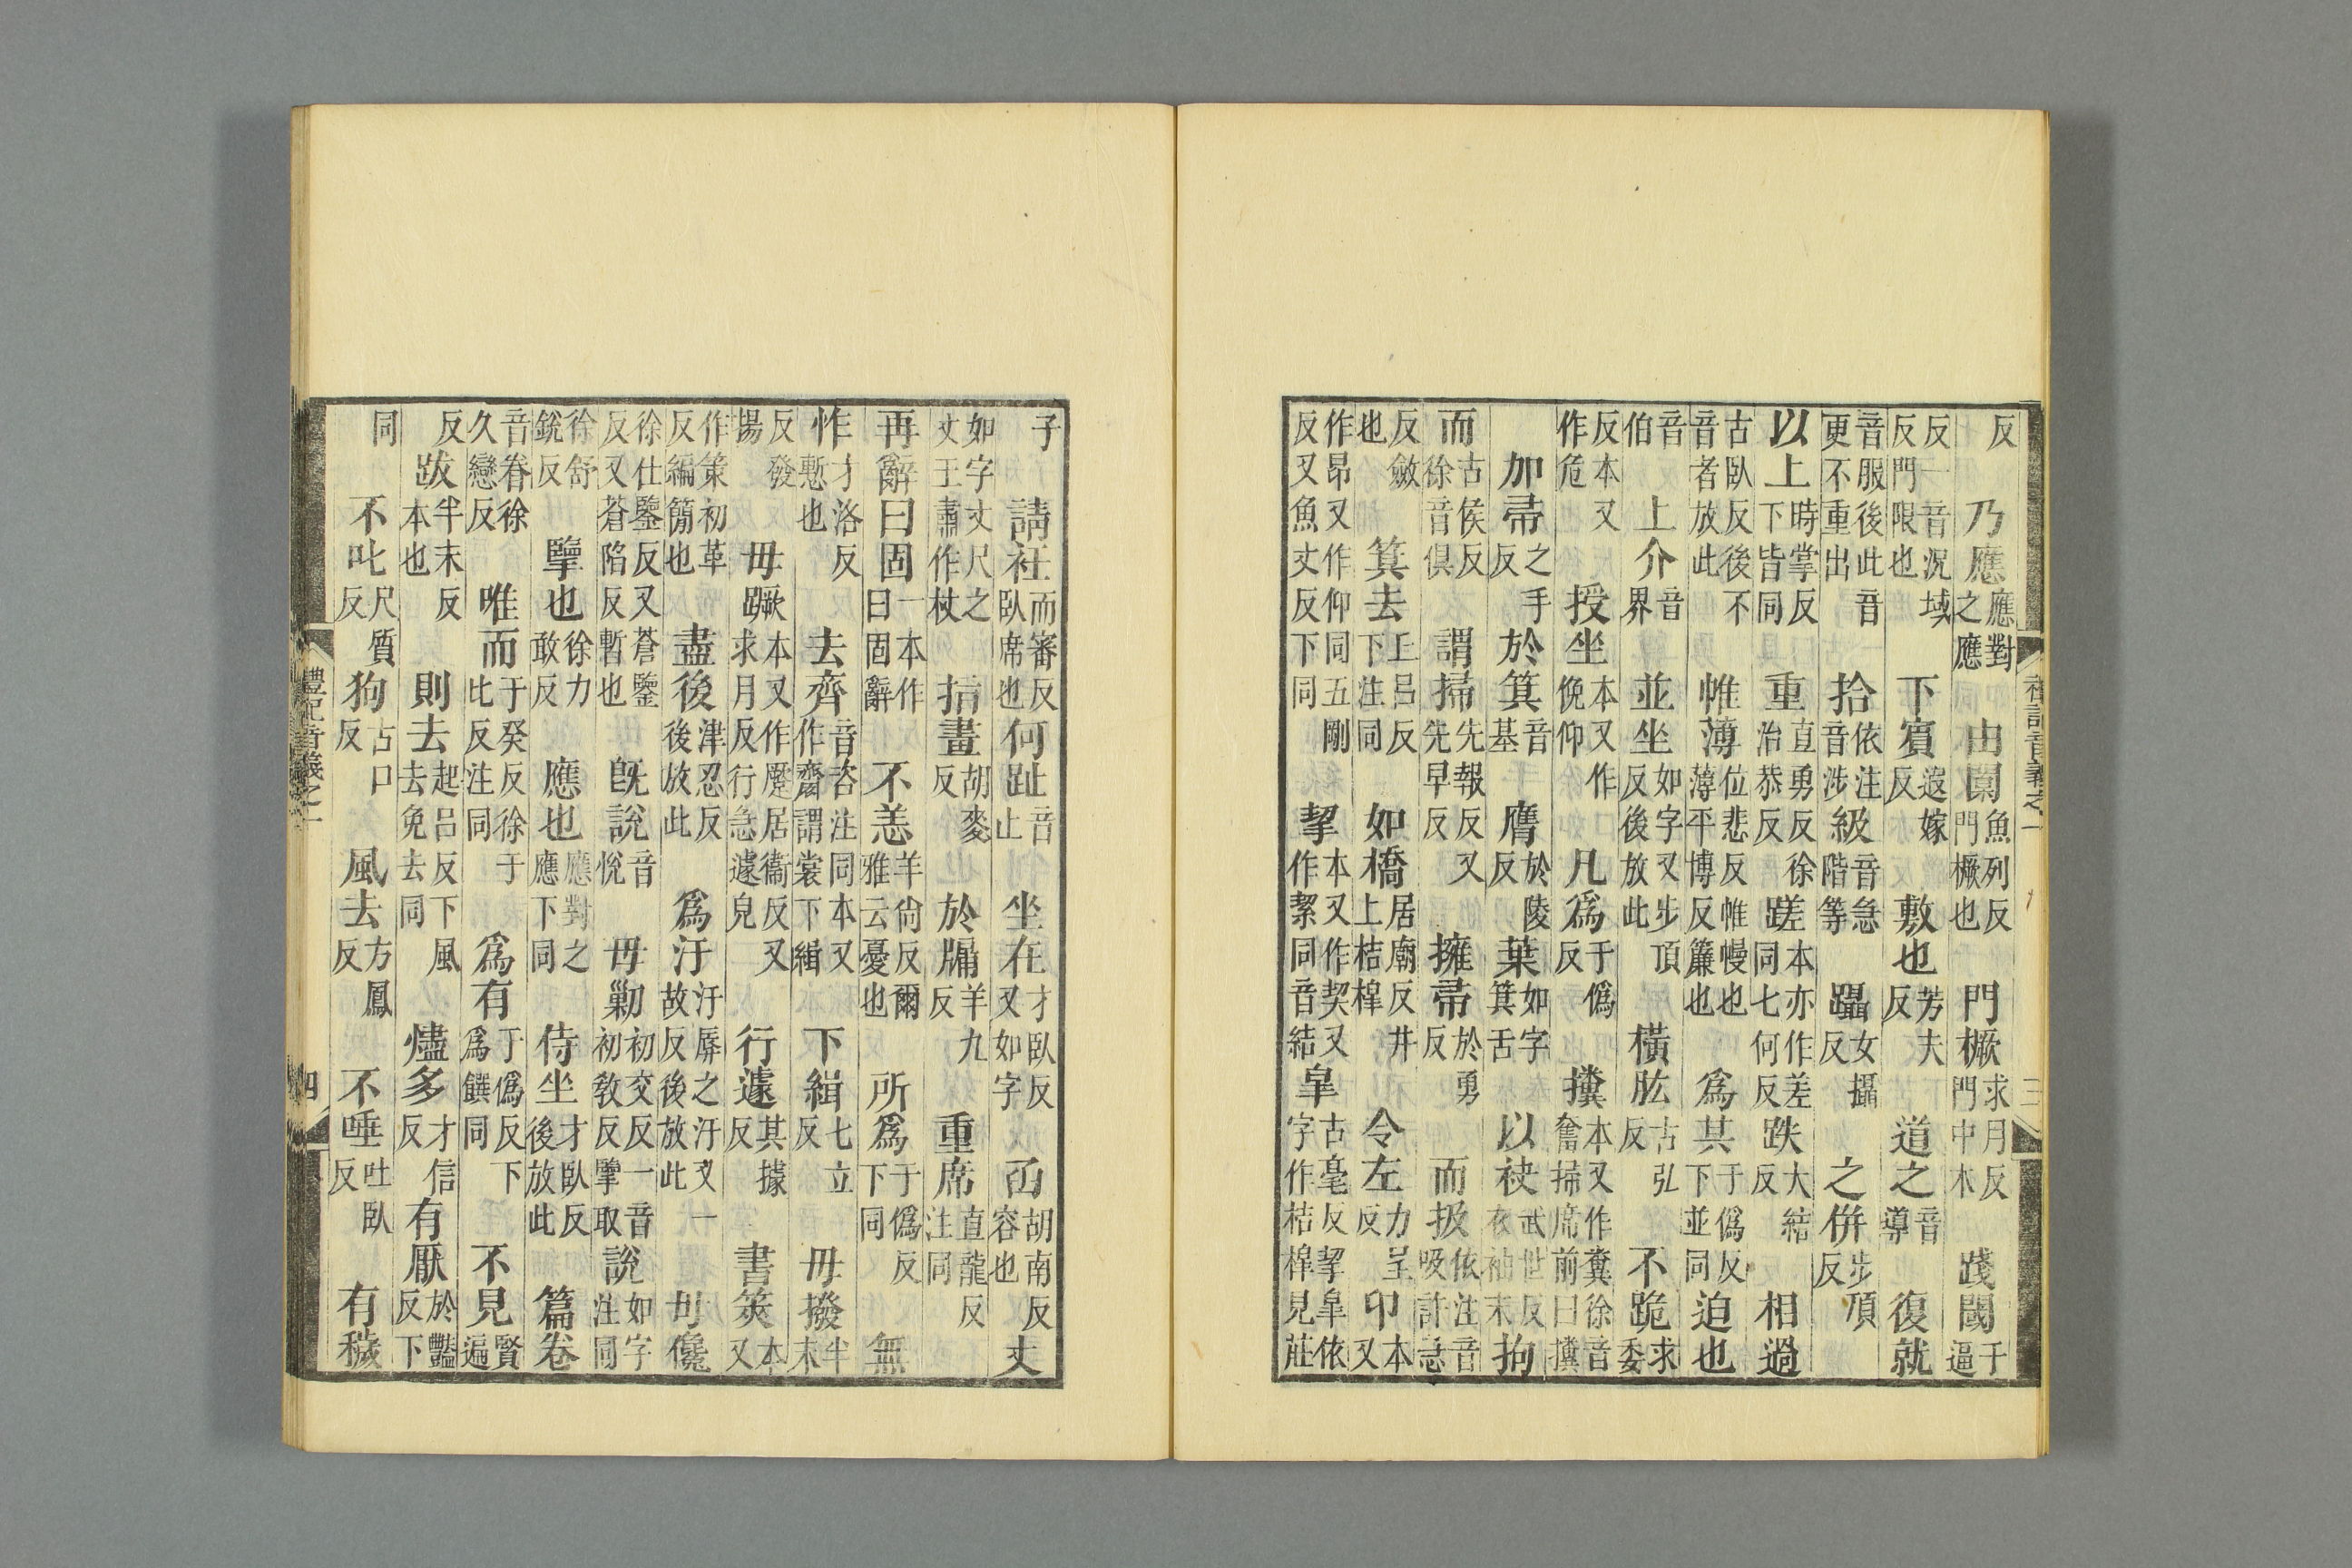 反乃應應對之應由闑魚列反門橛也門橛求月反門中木踐閾于逼
反一音況域反門限也下賓反遐嫁敷也芳夫反道之音導復就
音服後此音更不重出拾依注音涉級音急階等躡女攝反之併步頂反
以上時掌反下皆同重直勇反徐治恭反蹉本亦作差同七何反跌大結反相過
古臥反後不音者放此帷薄位悲反帷幔也薄平博反簾也爲其于僞反下並同迫也
音伯上介音界並坐如字又步頂反後放此橫肱古弘反不跪求委
反本又作危授坐本又作俛仰凡爲于僞反攩本又作糞徐音奮掃席前曰攩
加帚之手反於箕音基膺於陵反葉如字箕舌以袂武世反衣袖末拘
而古侯反徐音俱謂掃先報反又先早反擁帚於勇反而扱依注音吸許急
反斂也箕去丘呂反下注同如橋居廟反井上桔槔令左力呈反卬本又
作昂又作仰同五剛反又魚丈反下同挈本又作契又作絜同音結臯古毫反挈臯依字作桔槔見莊
禮記音義之一 三
子請衽而審反臥席也何趾音止坐在才臥反又如字函胡南反容也丈
如字丈尺之丈王肅作杖指畫胡麥反於牖羊九反重席直龍反注同
再辭曰固一本作曰固辭不恙羊尚反爾雅云憂也所爲于僞反下同無
怍才洛反慙也去齊音咨注同本又作齋謂裳下緝下緝七立反毋撥半末
反發揚毋蹶本又作蹷居衞反又求月反行急遽皃行遽其據反書筴本又
作策初革反編簡也盡後津忍反後放此爲汙汙辱之汙又一故反後放此毋儳
徐仕鑒反又蒼鑒反又蒼陷反暫也既說音悅毋勦初交反一音初敎反擥取說如字注同
徐舒銳反擥也徐力敢反應也應對之應下同侍坐才臥反後放此篇卷
音眷徐久戀反唯而于癸反徐于比反注同爲有于僞反下爲饌同不見賢遍
反跋半末反本也則去起呂反下去免去同風燼多才信反有厭於豔反下
同不叱尺質反狗古口反風去方鳳反不唾吐臥反有穢
禮記音義之一 四